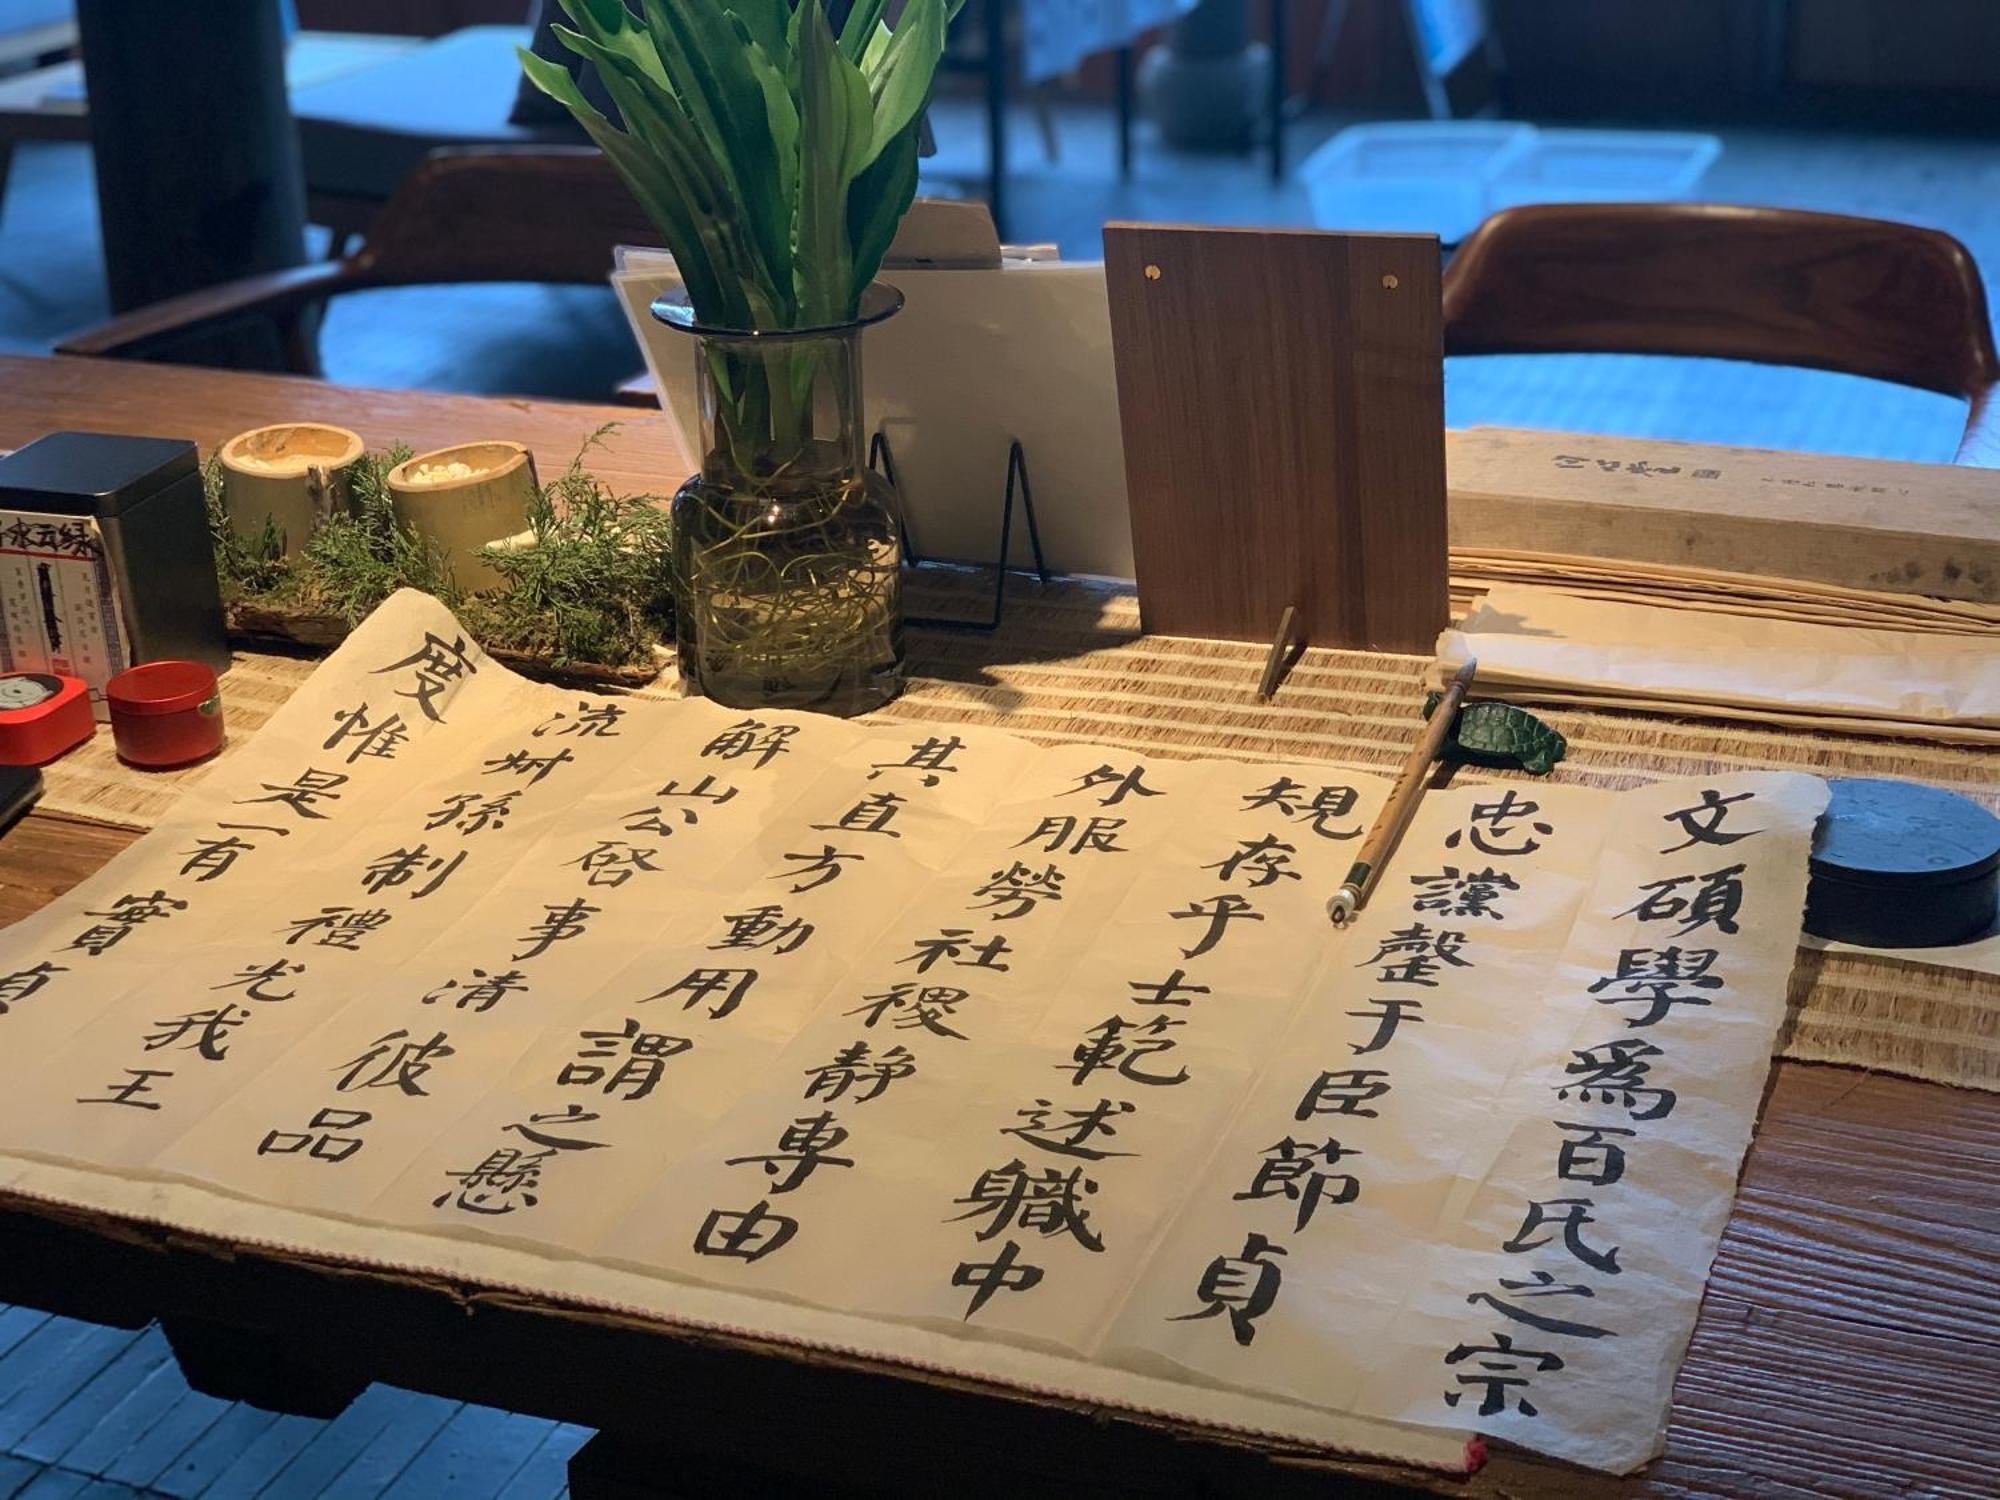 文碩學爲百氏之宗
忠讜罄于臣節貞
規存乎士範述軄中
外服勞社稷静専由
其直方動用謂之懸
解山公啓事清彼品
流叔孫制禮光我王
度惟是一有實貞
水云绿